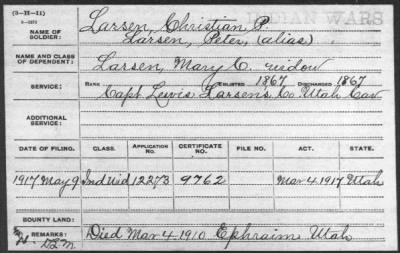 (3—H—11)
NAME OF SOLDIER: Larsen, Christian P. INDIAN WARS
Larsen, Peter, (alias)
NAME AND CLASS OF DEPENDENT: Larsen, Mary C. widow
SERVICE: RANK ENLISTED 1867 DISCHARGED 1867
Capt. Lewis Larsen's Co Utah Cav
ADDITIONAL SERVICE:
DATE OF FILING. CLASS. APPLICATION NO. CERTIFICATE NO. FILE NO. ACT. STATE.
1917 May 9 Ind Wid 12273 9762 Mar 4. 1917 Utah
BOUNTY LAND:
REMARKS: Died Mar 4. 1910 Ephraim Utah